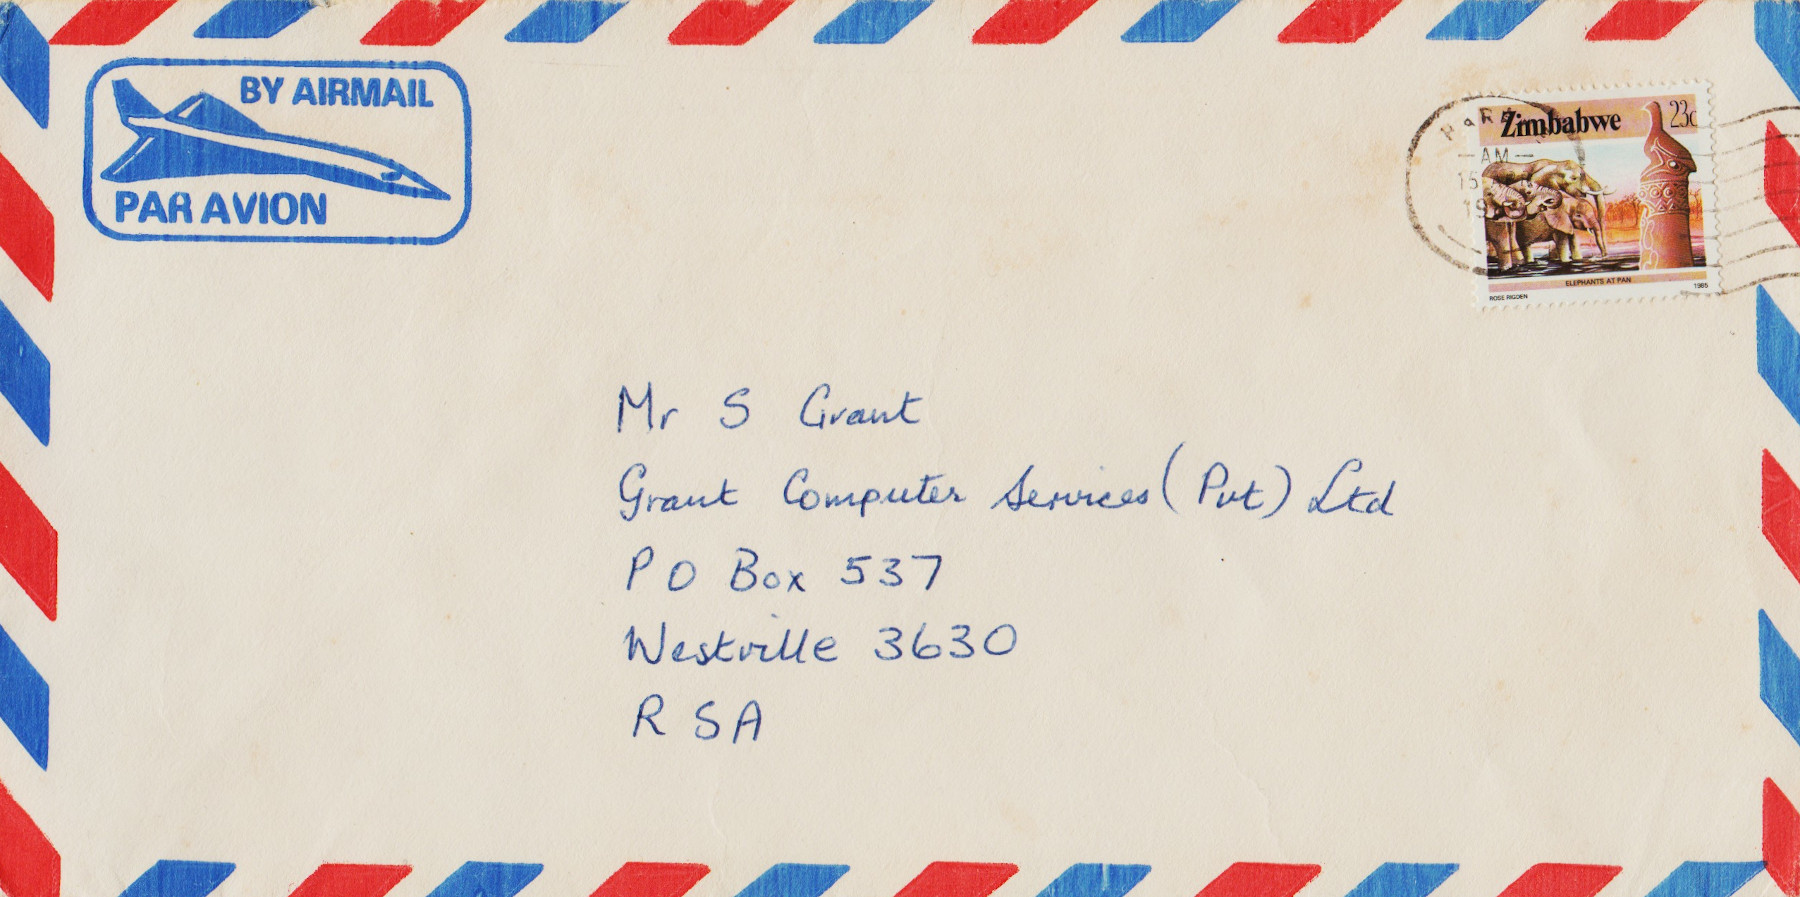 BY AIRMAIL
PAR AVION
Zimbabwe 23c
AM
15
ELEPHANTS AT PAN
ROSE RIGDEN 1985
Mr S Grant
Grant Computer Services (Pvt) Ltd
P O Box 537
Westville 3630
R S A